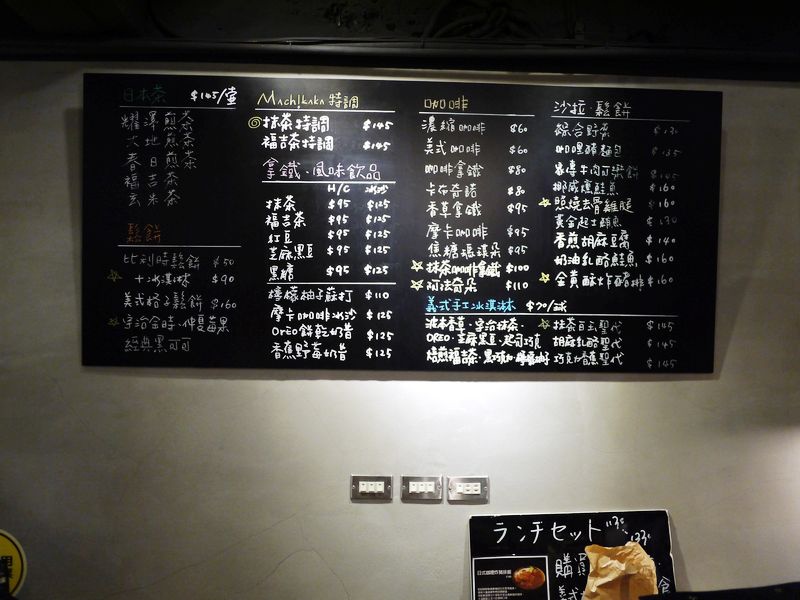 日本茶 $145/壺
耀澤煎茶
大地煎茶
春日煎茶
福吉茶
玄米茶
鬆餅
比利時鬆餅 $50
+冰淇淋 $90
美式格子鬆餅 $160
宇治金時·仲夏莓果
經典黑可可
Machikaka 特調
抹茶特調 $145
福吉茶特調 $145
拿鐵·風味飲品
H/C 冰沙
抹茶 $95 $125
福吉茶 $95 $125
紅豆 $95 $125
芝麻黑豆 $95 $125
黑糖 $95 $125
檸檬柚子蘇打 $110
摩卡咖啡冰沙 $125
Oreo餅乾奶昔 $125
香蕉野莓奶昔 $125
咖啡
濃縮咖啡 $60
美式咖啡 $60
咖啡拿鐵 $80
卡布奇諾 $80
香草拿鐵 $95
摩卡咖啡 $95
焦糖瑪琪朵 $95
抹茶咖啡拿鐵 $100
阿法奇朵 $110
義式手工冰淇淋 $70/球
·宇治抹茶·
OREO·芝麻黑豆·起司巧貝
焙煎福吉茶·黑巧·
沙拉·鬆餅
綜合野菜 $130
咖哩 麵包 $135
牛肉 鬆餅 $145
挪威燻鮭魚 $160
照燒去骨雞腿 $160
黃金起士鱈魚 $130
香煎胡麻豆腐 $140
奶油乳酪鮭魚 $160
金黃酥炸豬排 $160
抹茶白玉聖代 $145
胡麻乳酪聖代 $145
巧克力香蕉聖代 $145
ランチセット
購買
義式
食